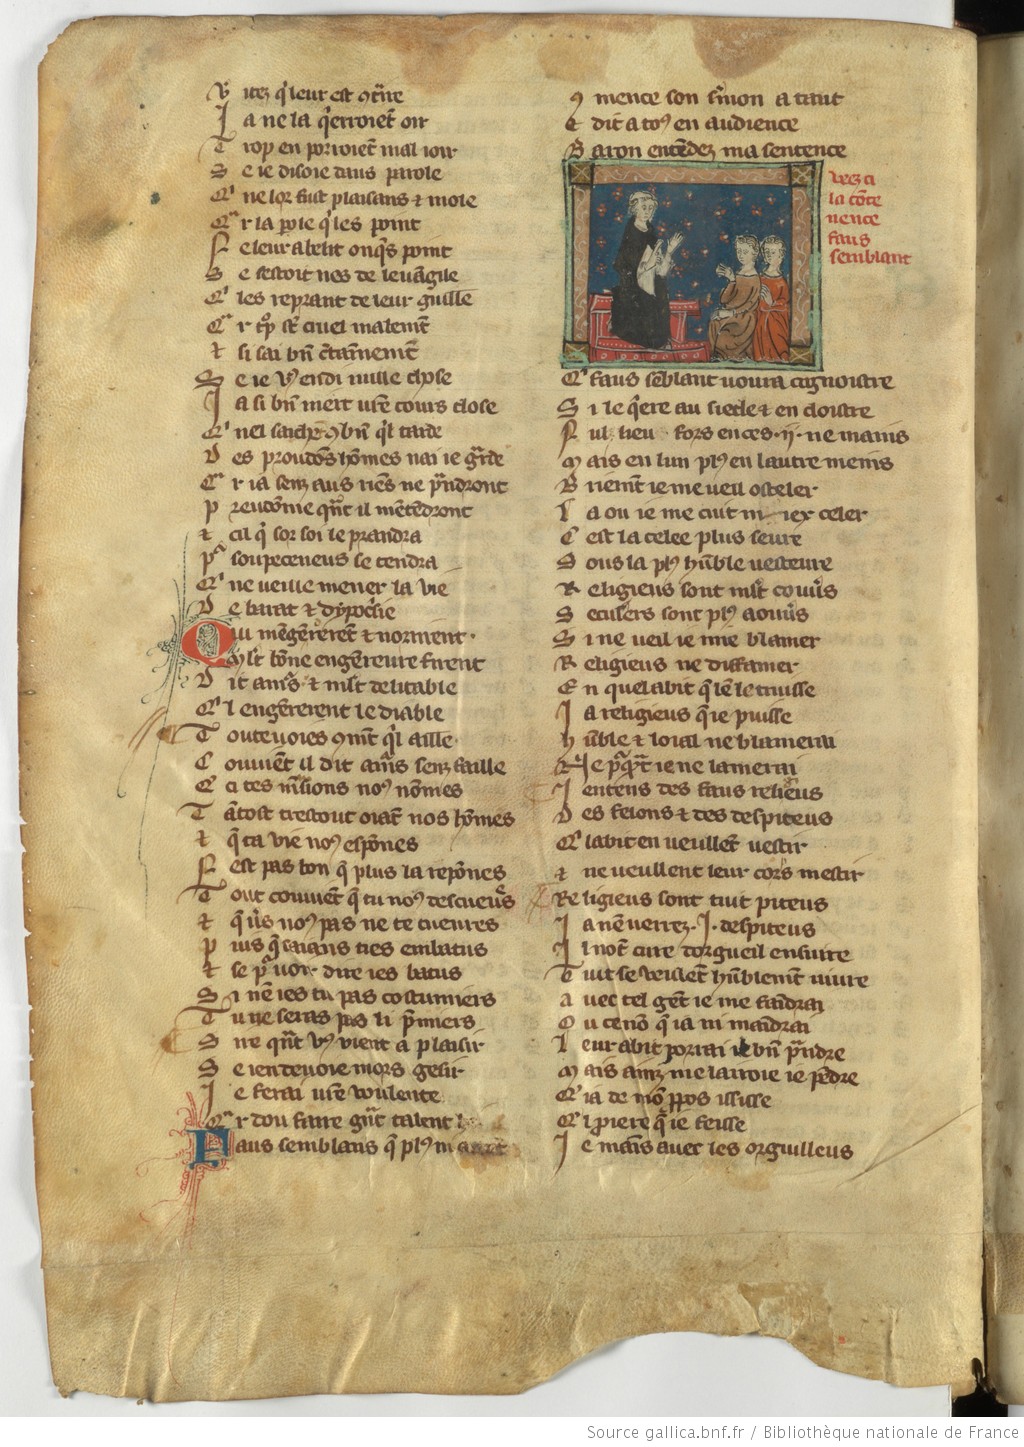 V itez q̉ leur est 9t̃re
J a ne la q̃rroiẽt oir
T rop en porroiẽt mal ioir
S e ie disoie dans parole
Q̉ ne lor fust plaisans & mole
Q̃r la pole q̉ les point
N e leur abelit onq̃s point
S e sestoit nes de leuãgile
Q̉ les reprant de leur guille
C̃r tp̉ st̃ cruel malemẽt
& si sai bñ c̃tainemẽt
S e ie vꝰ en di nulle chose
J a si bñ niert vr̃e cours close
Q̉ nel sache 9bñ q̉l tarde
D es proudõs hõmes nai ie garde
C̃r ia senz aus riẽs ne pñdront
P reudõme qñt il mẽtẽdront
& cil q̉ sor soi le prandra
P̃ soupeceneus se rendra
Q̉ ne veille mener la vie
D e barat & dypocsie
Qui mẽgẽrerẽt & norrirent
Mlt bõne engẽreure firent
D it amr̃s & mlt delitable
Q̉ l engẽrerent le diable
T outeuoies 9mẽt q̉l aille
C ouuiẽt il dit amr̃s senz faille
Q̉ ci tes mãsions noꝰ nõmes
T ãtost trestout oiant nos hõmes
& q̃ ta vie noꝰ espõnes
N est pas bon q̃ plus la repõnes
T out couuiẽt q̃ tu noꝰ descueur̃s
& q̃ ũs noꝰ pas ne te cueures
P uis q̃ caians ties embatus
& se p̃ voir dire ies batus
S i nẽ ies tu pas costumiers
T u ne seras pas li p̃miers
S ire qñt vꝰ vient a plaisir
S e ien deuoie mors gesir
J e ferai vr̃e voulente
C̃r dou faire grãt talent
Faus semblans q̃ plꝰ ni atãt
9 mence son sr̃mon a tant
& dit a toꝰ en audience
B aron entẽdez ma sentence
vez ci
la cõte
nence
faus
semblant
Q̉ faus sẽblant voura cognoistre
S i le q̃ere au siecle & en cloistre
N ul lieu fors en ces .ij. ne mains
M ais en lun plꝰ en lautre meins
B riemẽt ie me veil osteler
L a ou ie me cuit miex celer
C est la celee plus seure
S ous la plꝰ hũble vesteure
R eligieus sont mlt couũs
S eculiers sont plꝰ aouũs
S i ne veil ie mie blamer
R eligieus ne diffamer
E n quel abit q̃ ie le truisse
J a religieus q̃ ie puisse
H ũble & loial ne blamerai
N e p̃q̃t ie ne lamerai
J entens des faus religieus
D es felons & des despiteus
Q̉ labit en veullẽt vestir
& ne veullent leur cors mestir
R eligieus sont tuit piteus
J a nẽ verrez .J. despiteus
J l nõt cure dorgueil ensuire
T uit se veulẽt hũblemẽt viure
A uec tel gẽt ie me faĩdrai
O u ceno q̃ ia ni maĩdrai
L eur abit porrai ie bñ p̃ndre
M ais ainz me lairoie ie pẽdre
Q̉ ia de nõ ppos ississe
Q̉l piere q̃ ie feisse
J e mains auec les orguilleus
Source gallica.bnf.fr / Bibliothèque nationale de France